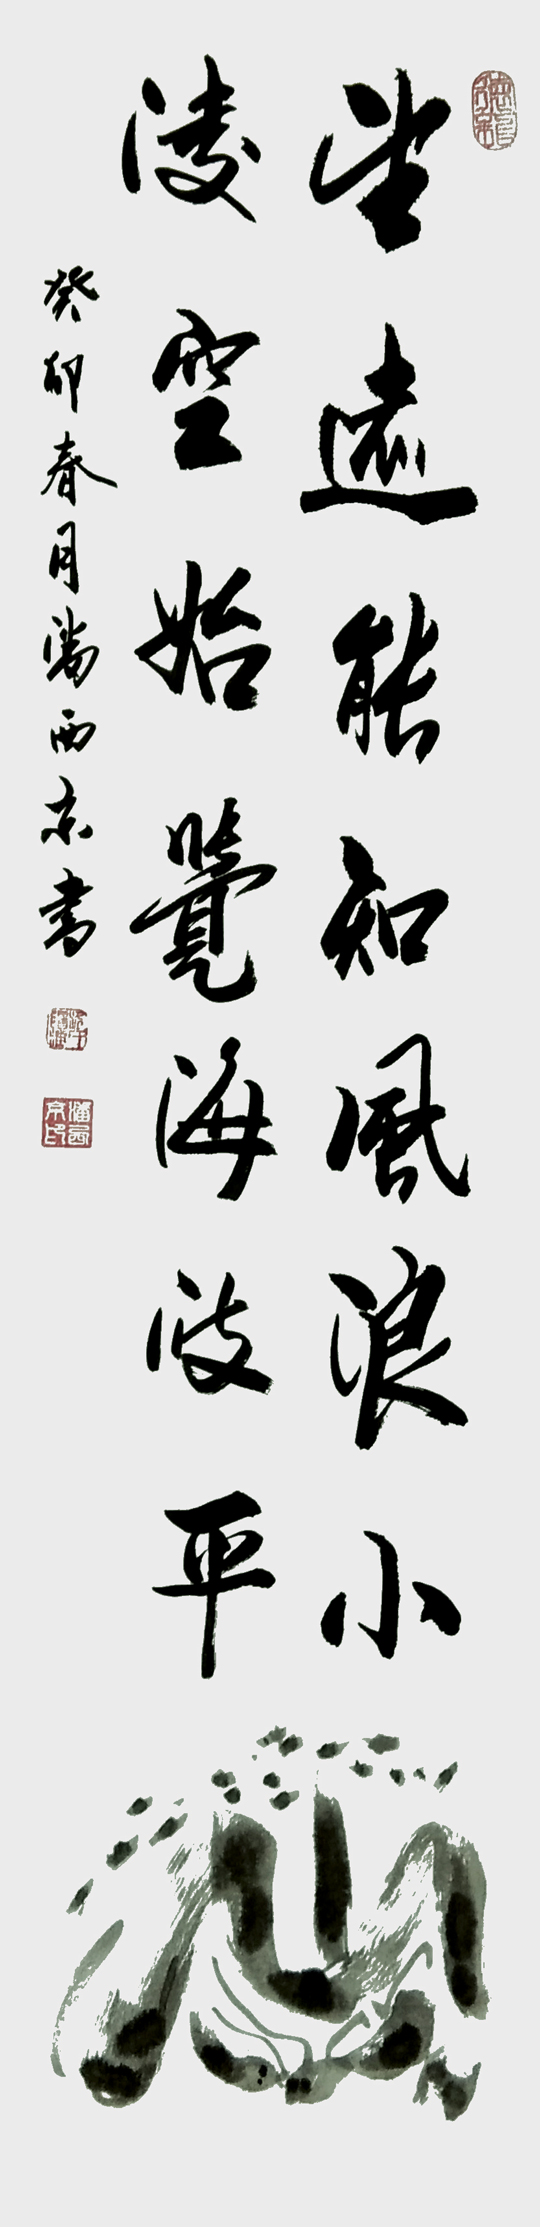 望遠能知風浪小
凌空始覺海波平
癸卯春月潘西京書
潘西京印